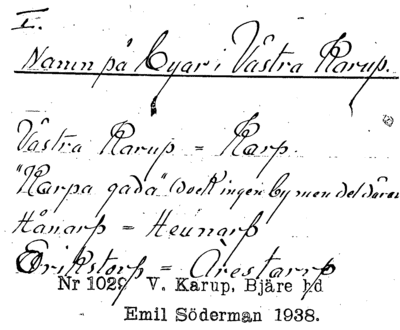 I.
Namn på Byar i Västra Karup.
Västra Karup = Karp.
"Karpa gada" (dock ingen by men del därav
Hånarp = Heunarp
Erikstorp = Örestarrp
Nr 1029 V. Karup, Bjäre hd
Emil Söderman 1938.